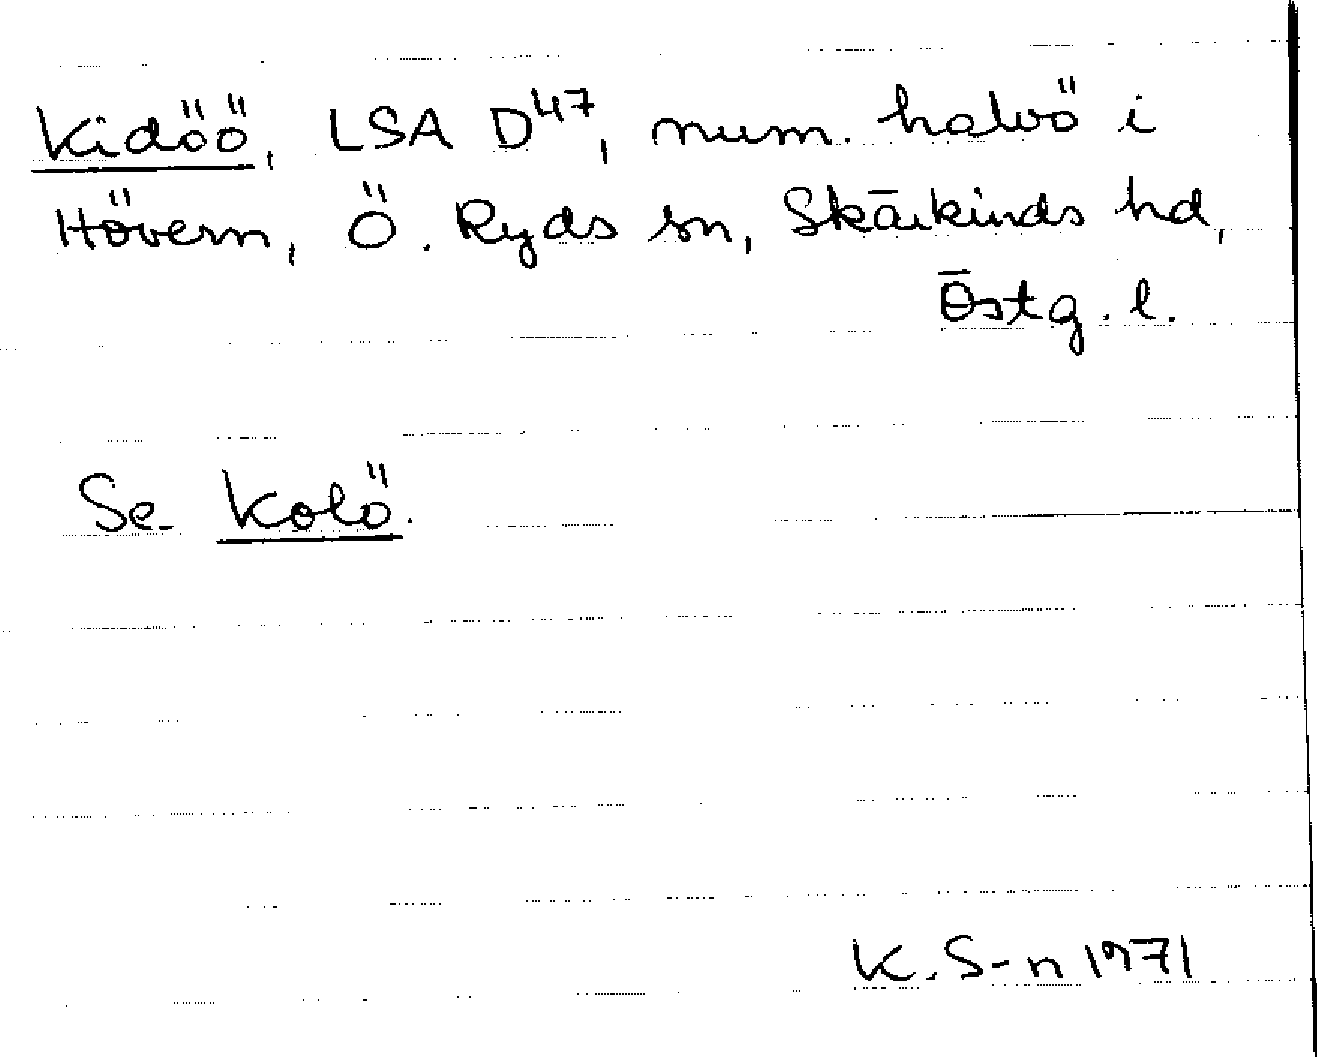 Kidöö, LSA D47, num. halvö i
Hövern, Ö. Ryds sn, Skärkinds hd,
Östg. l.
Se Kolö.
K. S-n 1971